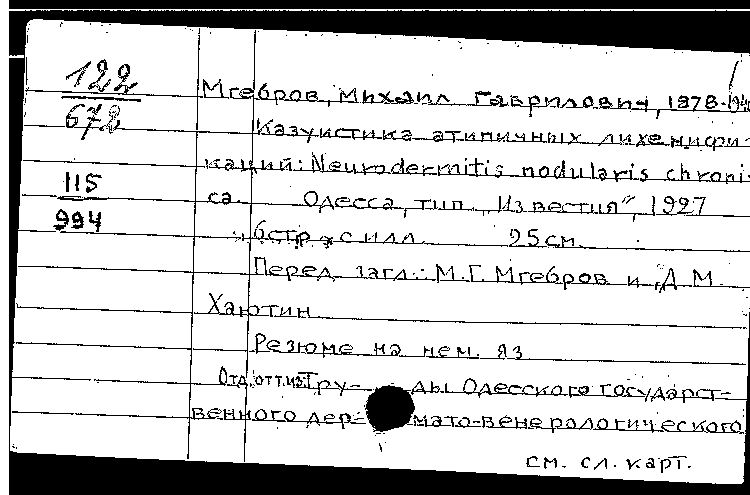 122
672
115
994
Мгебров, Михаил Гаврилович, 1878-194
Казуистика атипичных лихенифи-
каций: Neurodermitis nodularis chroni-
ca. Одесса, тип. „Известия”, 1927
6 стр. с илл. 25 см.
Перед загл.: М.Г. Мгебров и Д.М.
Хаютин
Резюме на нем. яз
Отд. отт. из: Тру- ды Одесского государст-
венного дер- мато-венерологического
см. сл. карт.